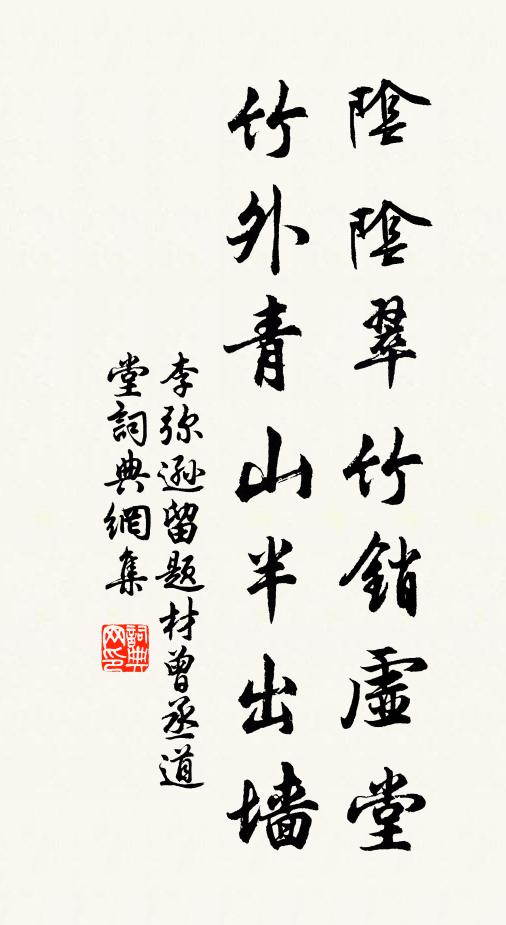 陰陰翠竹銷虛堂
竹外青山半出墻
李弥遜留題材曾丞道
堂詞典網集
詞典
网印